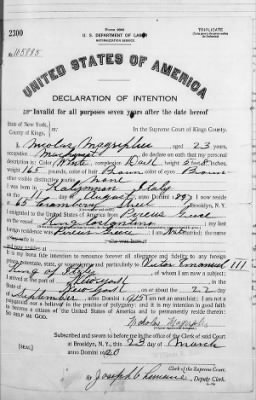 2300
TRIPLICATE
U. S. DEPARTMENT OF LABOR
NATURALIZATION SERVICE
UNITED STATES OF AMERICA
DECLARATION OF INTENTION
Invalid for all purposes seven years after the date hereof
State of New York,
County of Kings,
ss:
In the Supreme Court of Kings County.
I, aged 23 years,
occupation Machinist, do declare on oath that my personal
description is: Color White, complexion Dark, height 5 feet 8 inches,
weight 165 pounds, color of hair Brown, color of eyes Brown
other visible distinctive marks None
I was born in Italy
on the 11 day of August, anno Domini 1897; I now reside
at 65 Street, Brooklyn, N. Y.
I emigrated to the United States of America from
on the vessel; my last
foreign residence was; I am Not married; the name
It is my bona fide intention to renounce forever all allegiance and fidelity to any foreign
prince, potentate, state, or sovereignty, and particularly to Victor Emanuel III
King of Italy, of whom I am now a subject;
I arrived at the port of New York, in the
State of New York, on or about the 22 day
of September, anno Domini 1915; I am not an anarchist; I am not a
polygamist nor a believer in the practice of polygamy; and it is my intention in good faith
to become a citizen of the United States of America and to permanently reside therein:
So help me God.
Subscribed and sworn to before me in the office of the Clerk of said Court
at Brooklyn, N. Y., this 23 day of March
anno Domini 1920
[SEAL]
Clerk of the Supreme Court.
By Joseph, Deputy Clerk.